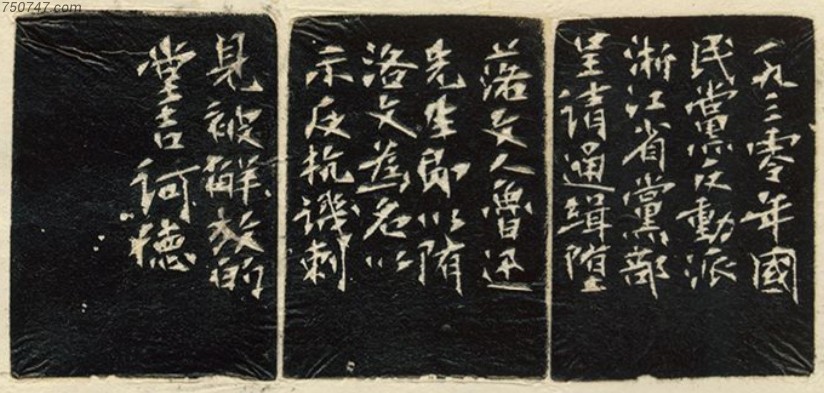 750747.com
一九三零年國
民黨反動派
浙江省黨部
呈請通緝墮
落文人魯迅
先生即以隋
洛文為名以
示反抗譏刺
見被解放的
堂吉訶德